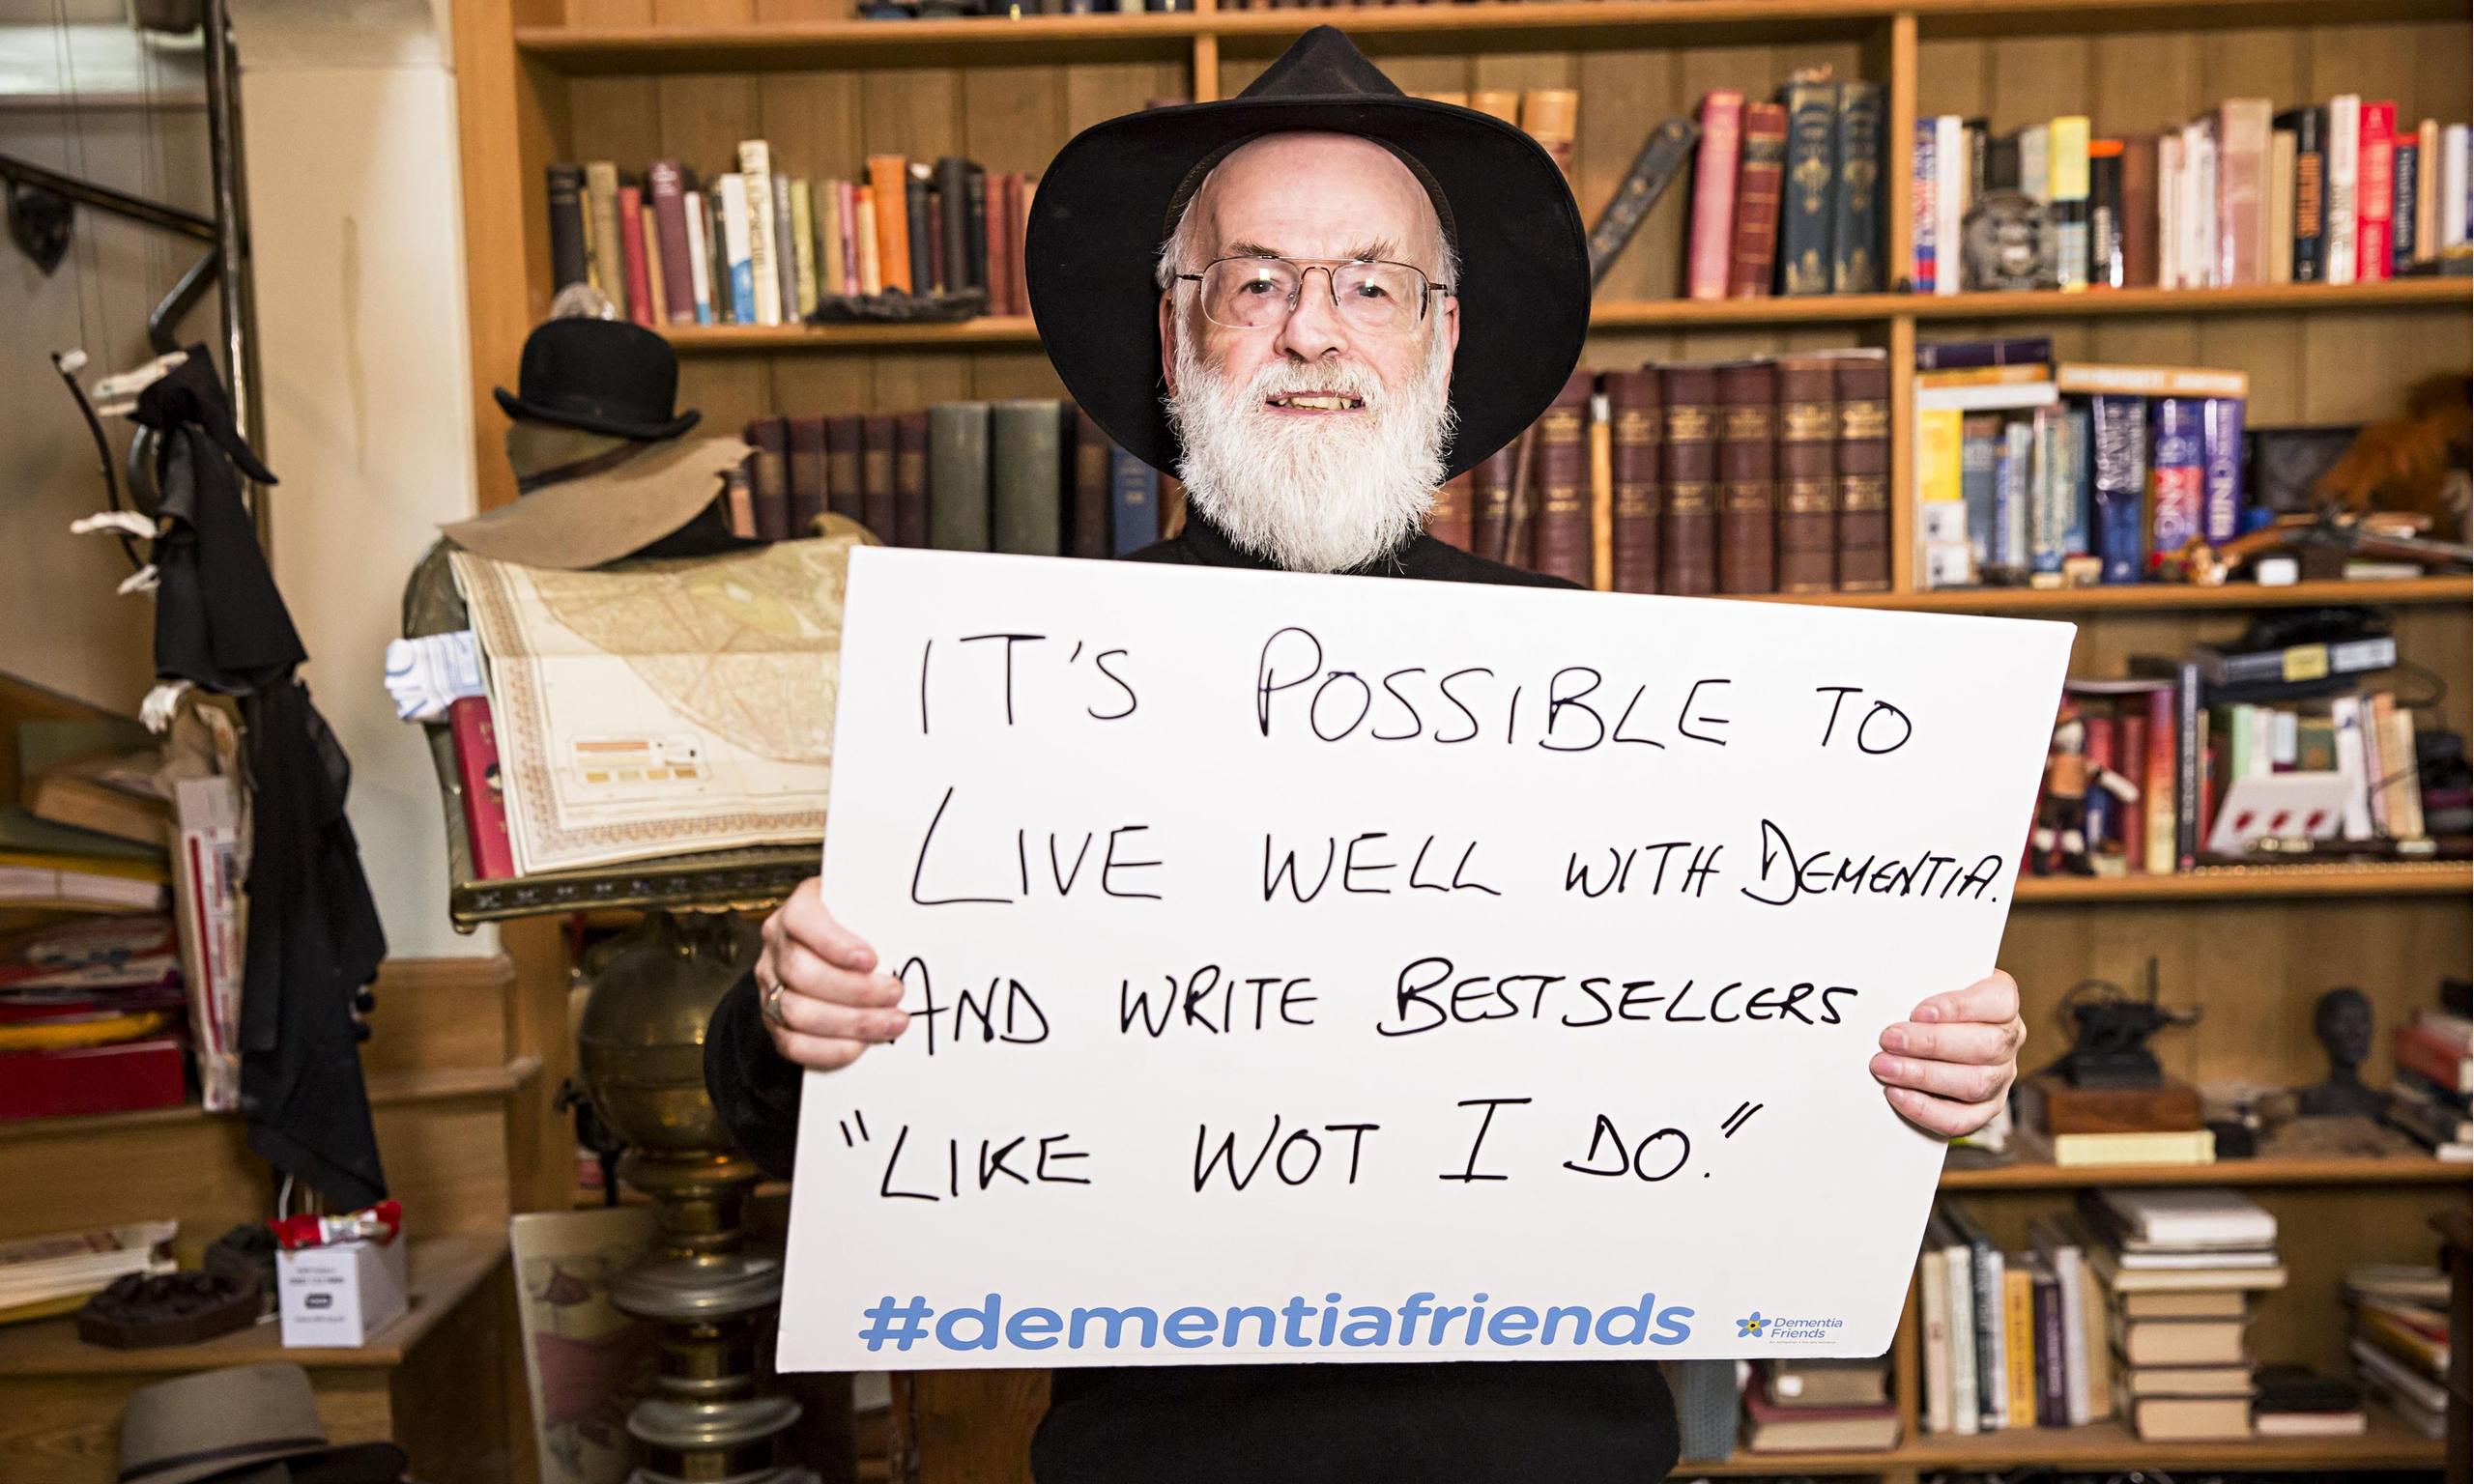 IT'S POSSIBLE TO
LIVE WELL WITH DEMENTIA.
AND WRITE BESTSELLERS
"LIKE WOT I DO."
#dementiafriends
Dementia
Friends